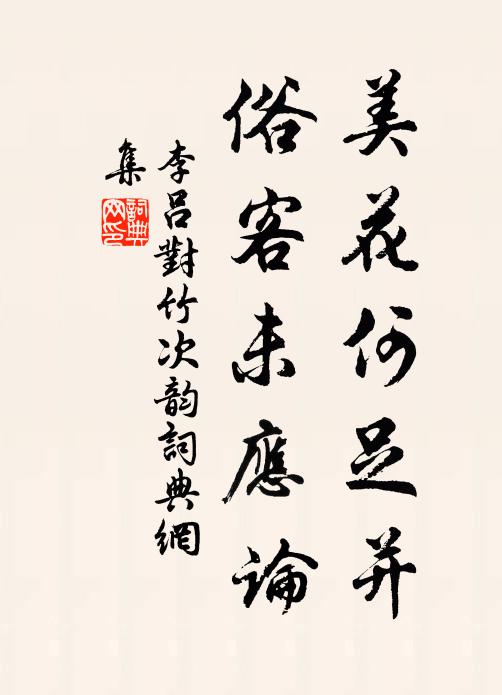 美花何足并
俗客未應論
李呂對竹次韵詞典網
集
詞典
网印